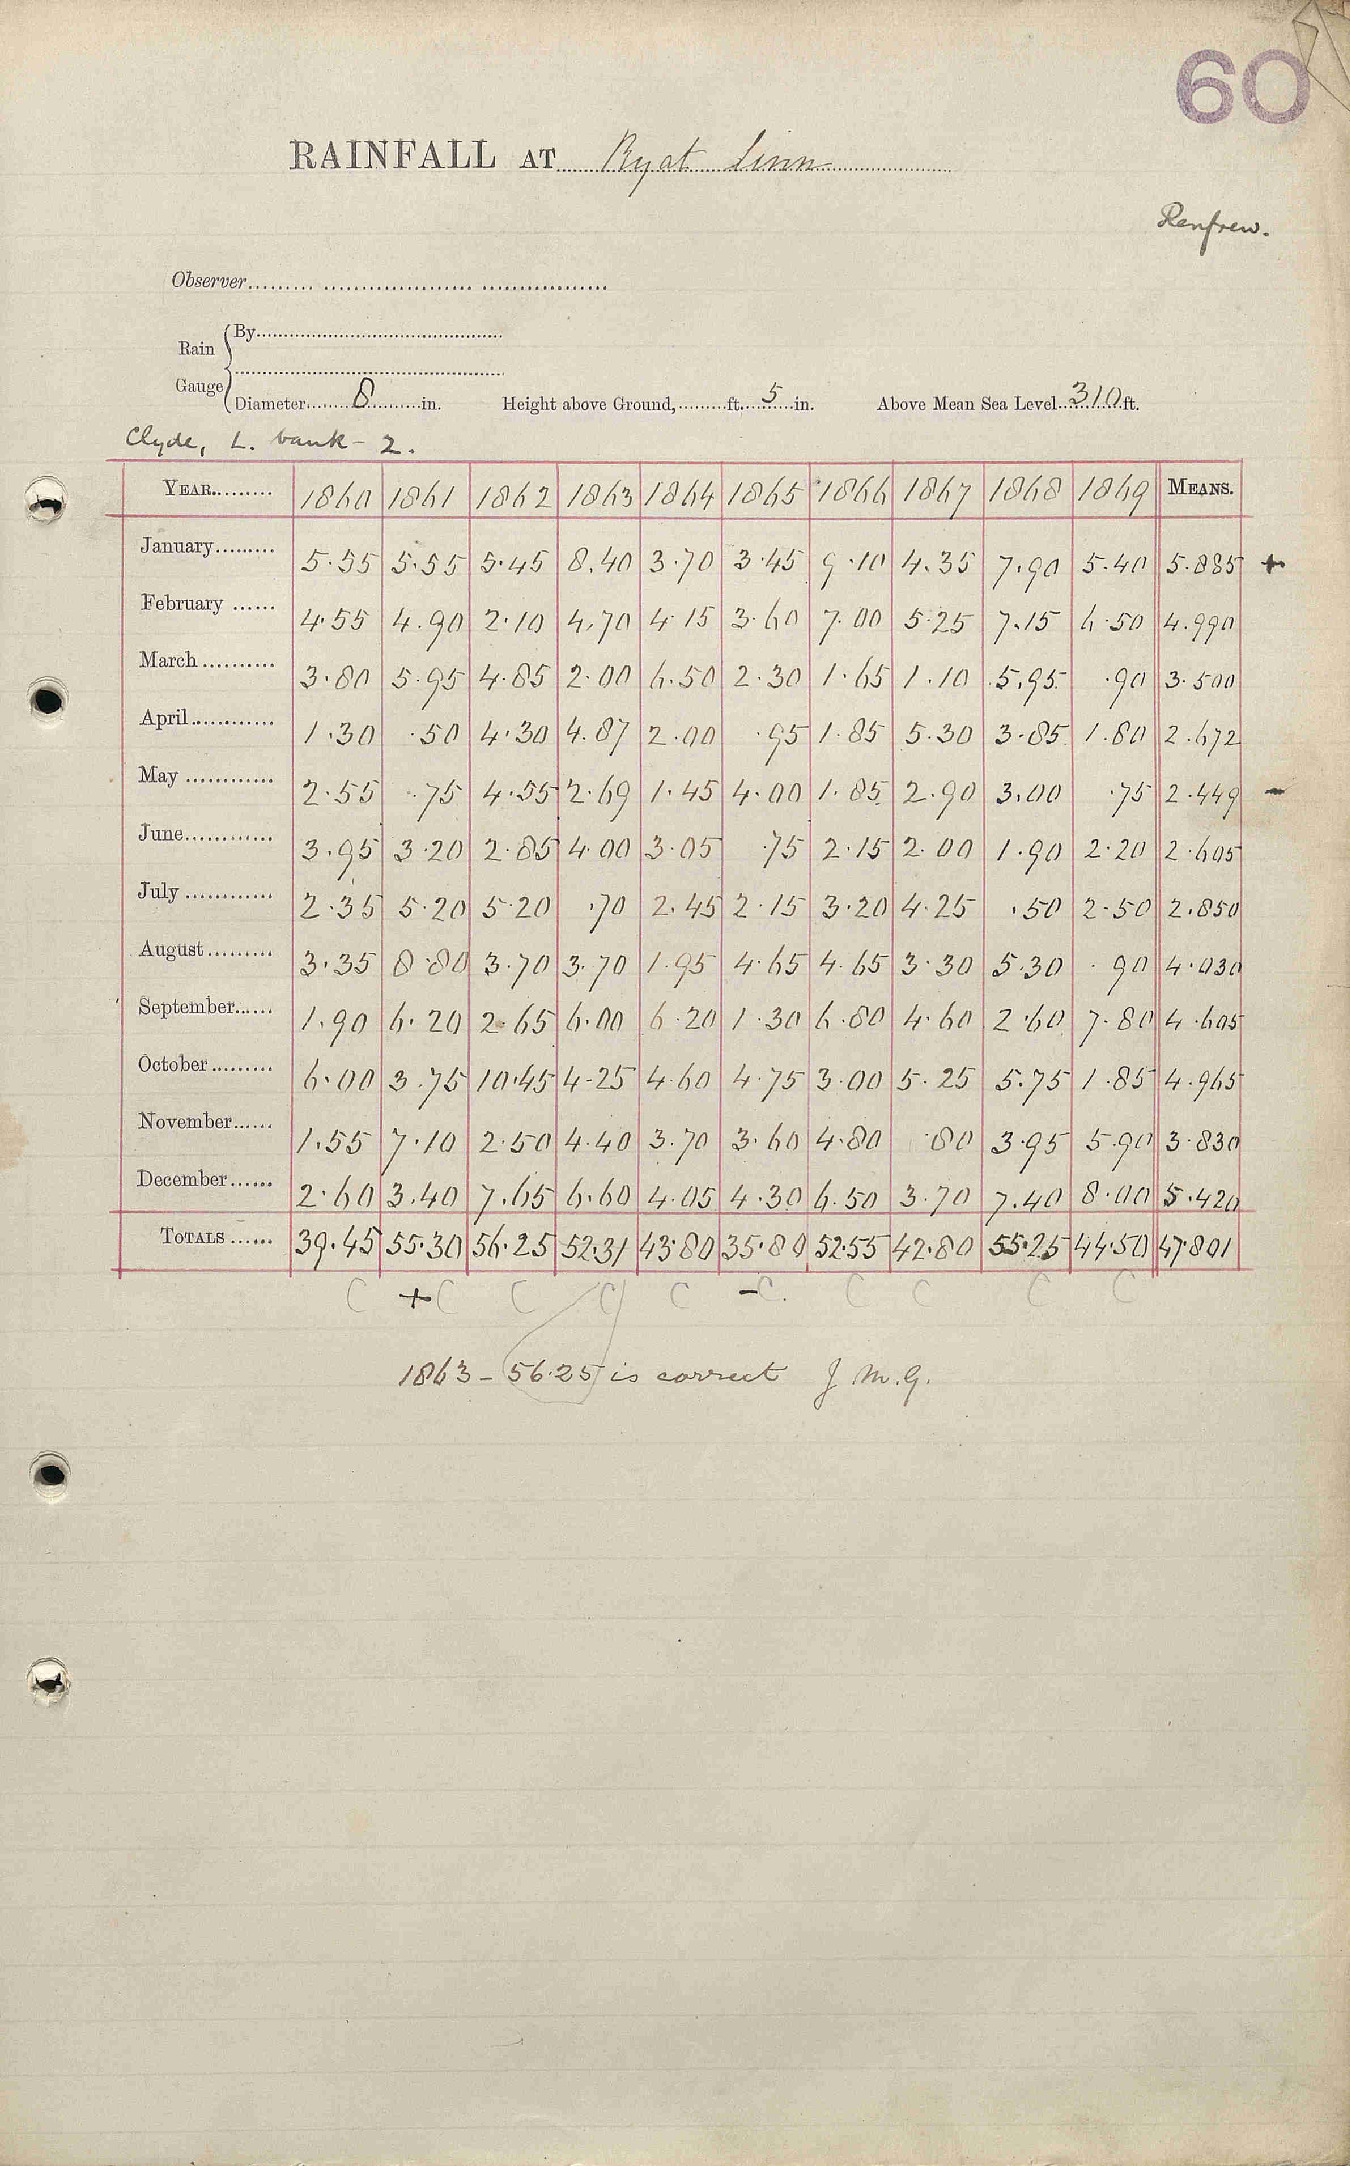 60
RAINFALL AT Ryat Linn
Renfrew.
Observer
Rain Gauge { By
Diameter 8 in. Height above Ground, ft. 5 in. Above Mean Sea Level 310 ft.
Clyde, L. bank - 2.
YEAR 1860 1861 1862 1863 1864 1865 1866 1867 1868 1869 MEANS.
January 5.55 5.55 5.45 8.40 3.70 3.45 9.10 4.35 7.90 5.40 5.885 +
February 4.55 4.90 2.10 4.70 4.15 3.60 7.00 5.25 7.15 6.50 4.990
March 3.80 5.95 4.85 2.00 6.50 2.30 1.65 1.10 5.95 .90 3.500
April 1.30 .50 4.30 4.87 2.00 .95 1.85 5.30 3.85 1.80 2.672
May 2.55 .75 4.55 2.69 1.45 4.00 1.85 2.90 3.00 .75 2.449 -
June 3.95 3.20 2.85 4.00 3.05 .75 2.15 2.00 1.90 2.20 2.605
July 2.35 5.20 5.20 .70 2.45 2.15 3.20 4.25 .50 2.50 2.850
August 3.35 8.80 3.70 3.70 1.95 4.65 4.65 3.30 5.30 .90 4.030
September 1.90 6.20 2.65 6.00 6.20 1.30 6.80 4.60 2.60 7.80 4.605
October 6.00 3.75 10.45 4.25 4.60 4.75 3.00 5.25 5.75 1.85 4.965
November 1.55 7.10 2.50 4.40 3.70 3.60 4.80 .80 3.95 5.90 3.830
December 2.60 3.40 7.65 6.60 4.05 4.30 6.50 3.70 7.40 8.00 5.420
TOTALS 39.45 55.30 56.25 52.31 43.80 35.80 52.55 42.80 55.25 44.50 47.801
C + C C C C - C. C C C C
1863 - 56.25 is correct J M.G.